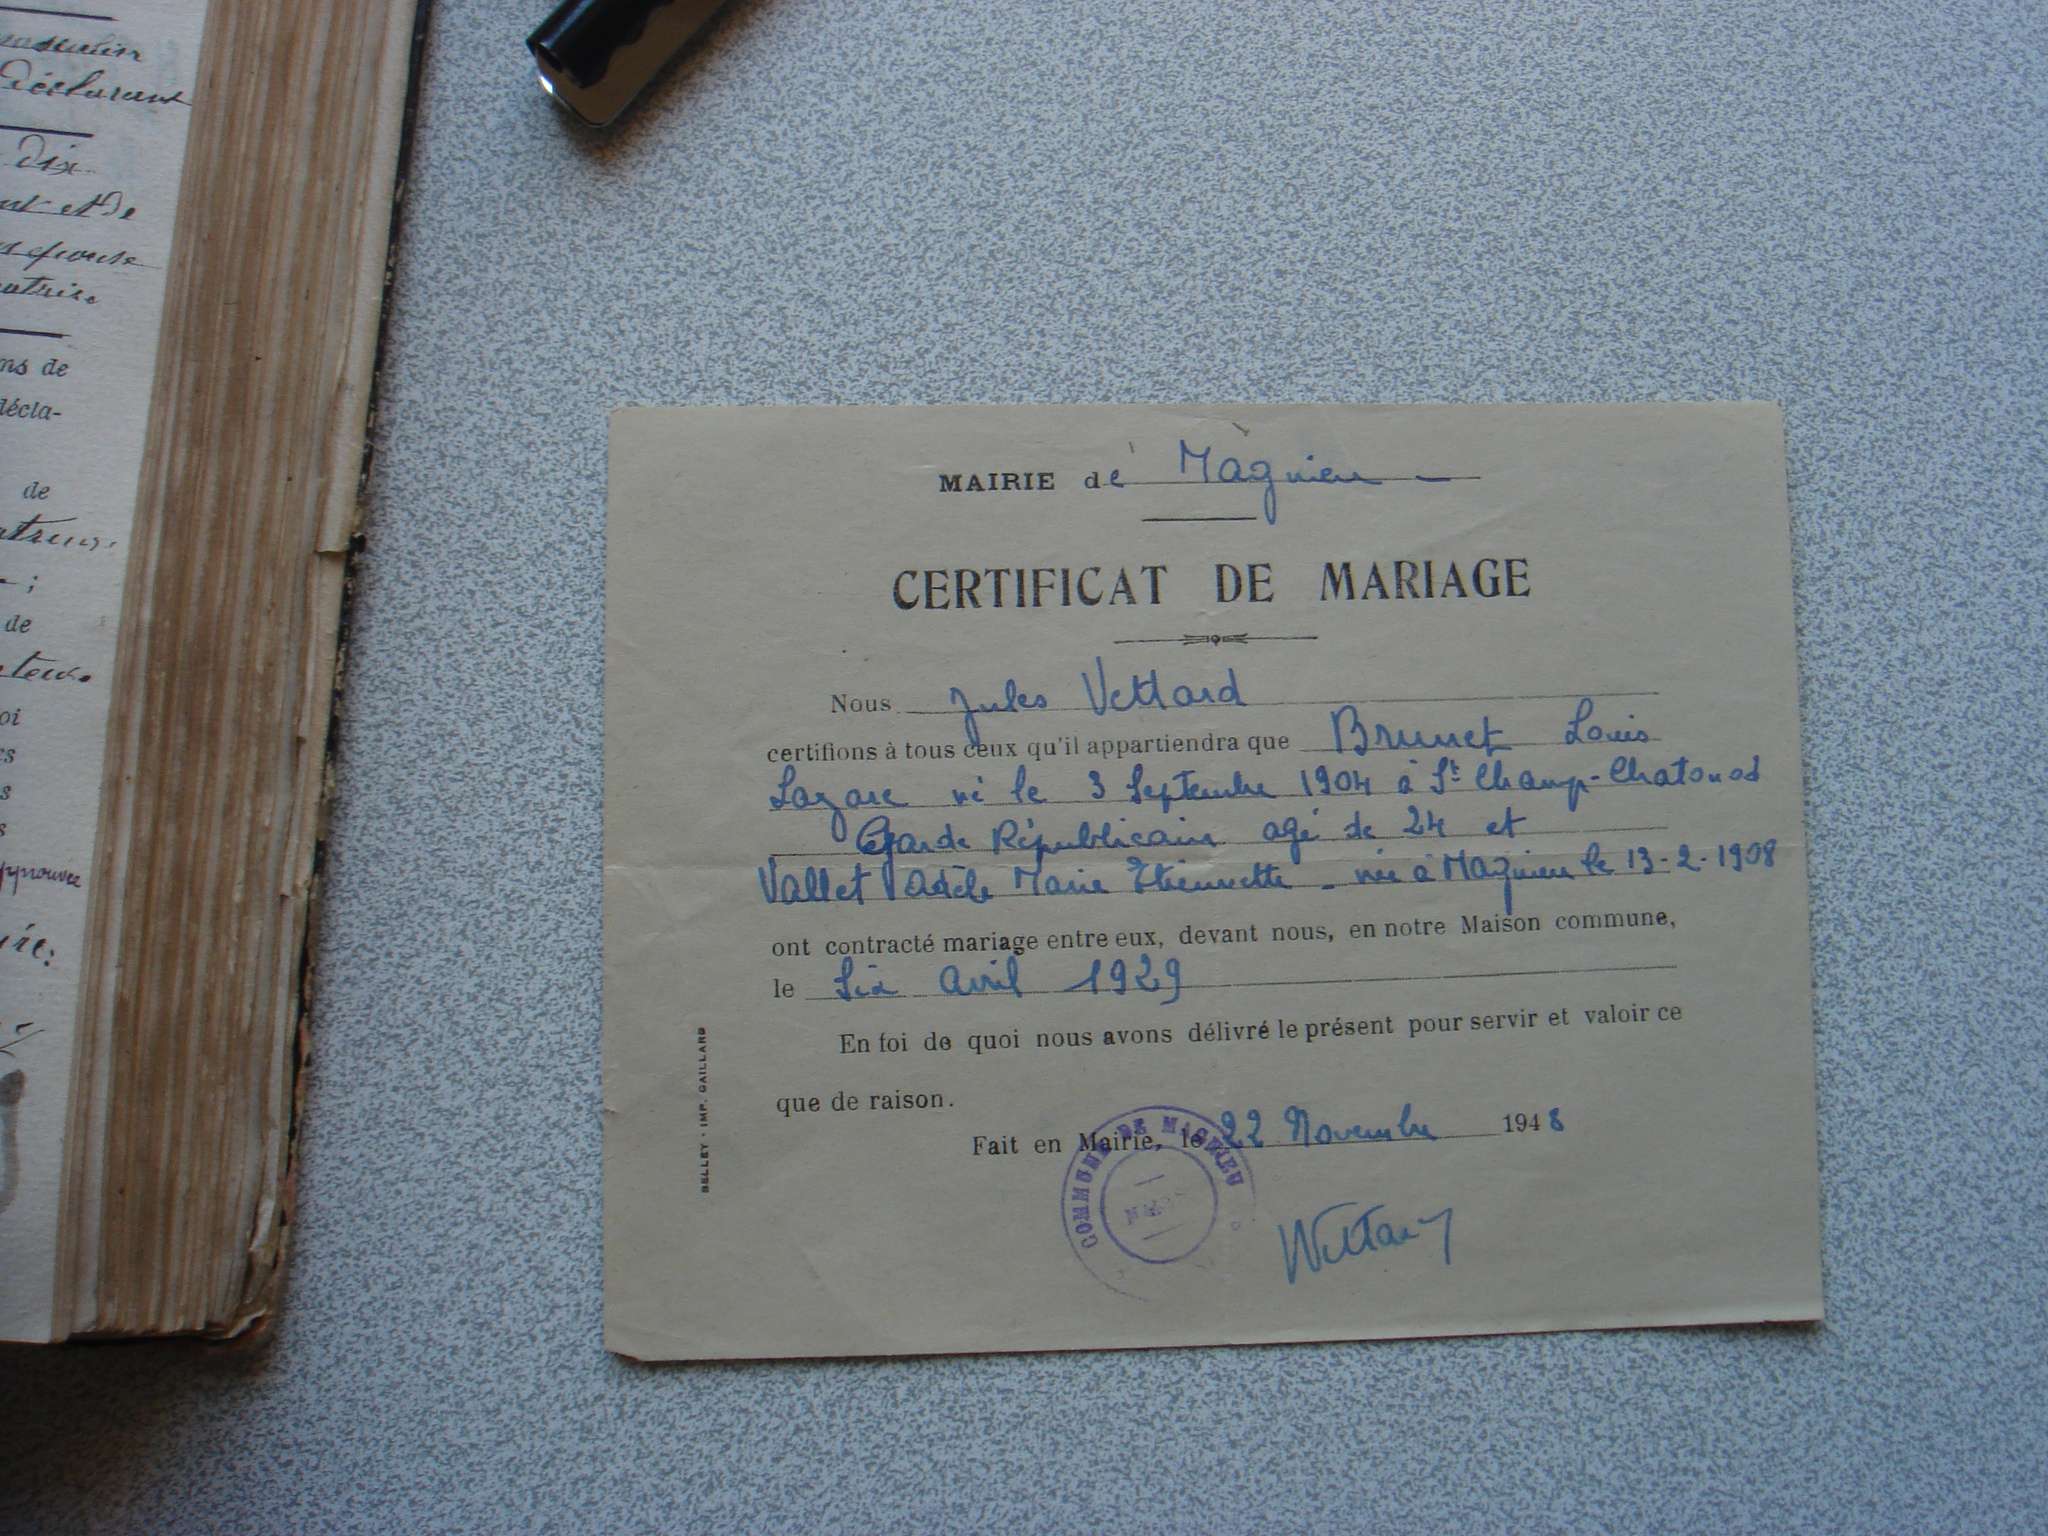 déclarant
dix
et de
ns de
décla-
de
;
de
MAIRIE de Magnieu
CERTIFICAT DE MARIAGE
Nous Jules Vettard
certifions à tous ceux qu'il appartiendra que Brunet Louis
Lazare né le 3 Septembre 1904 à St Champ-Chatonod
Garde Républicain agé de 24 et
Vallet Adèle Marie Etiennette - née à Magnieu le 13-2-1908
ont contracté mariage entre eux, devant nous, en notre Maison commune,
le Six Avril 1929
En foi de quoi nous avons délivré le présent pour servir et valoir ce
que de raison.
Fait en Mairie, le 22 Novembre 1948
COMMUNE DE MAGNIEU
Vettard
BELLEY - IMP. GAILLARD